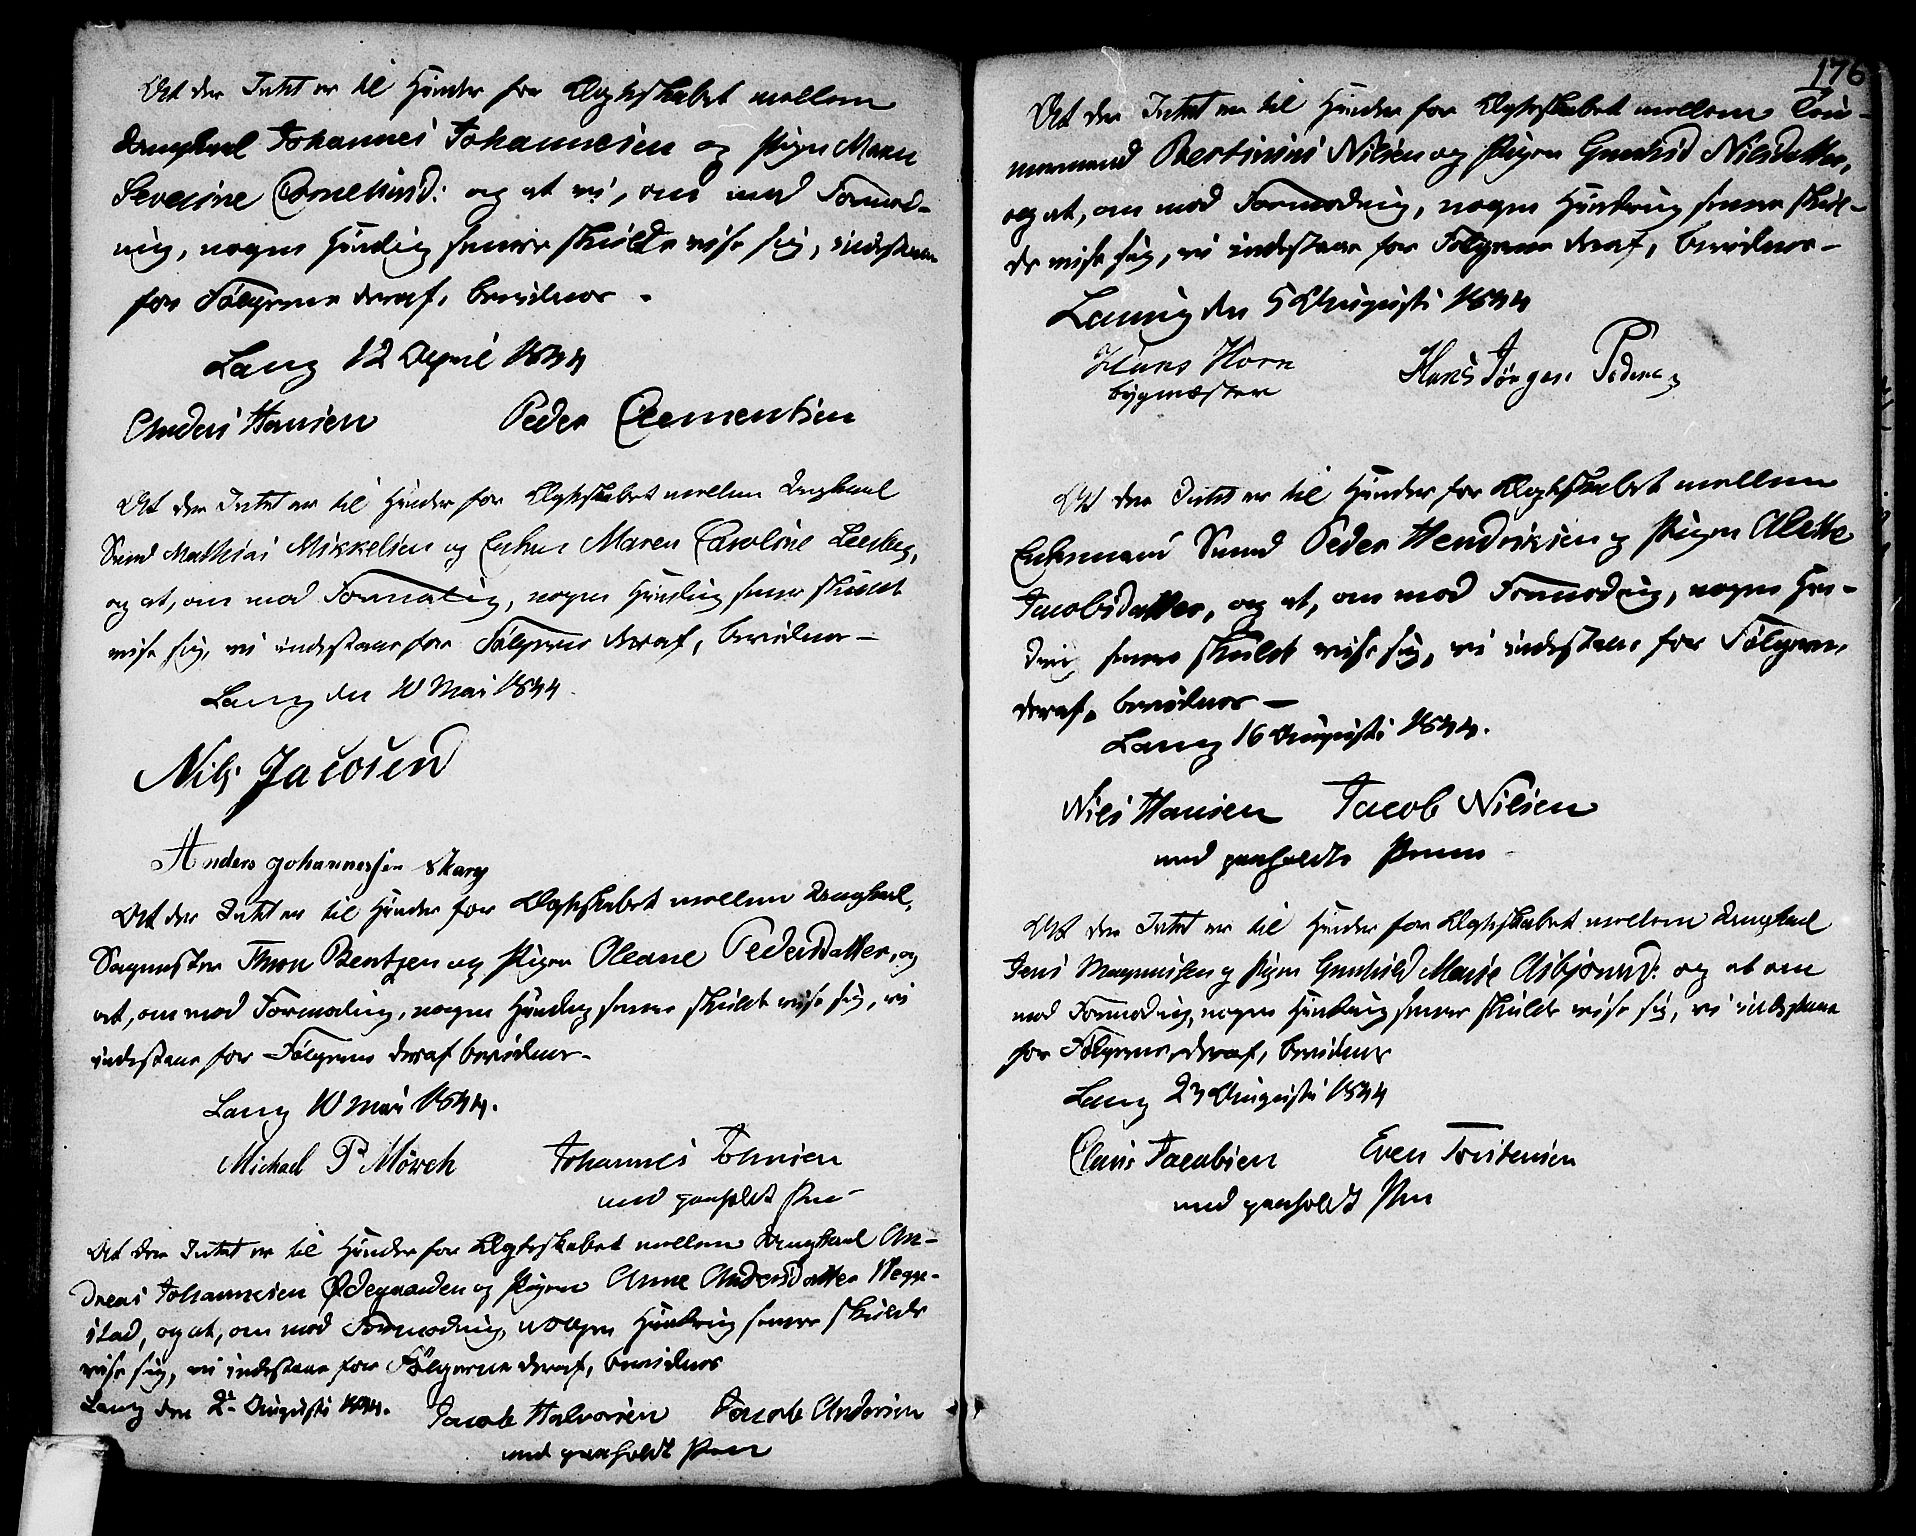 At der Intet er til Hinder for Ægteskabet mellem
Ungkarl Johannes Johannesen og Pigen Maren
Severine Corneliusd: og at vi, om mod Formod-
ning, nogen Hindring senere skulde vise sig, indestaae
for Følgerne deraf, bevidnes.
Lang 12 April 1844
Anders Hansen Peder Clementsen
At der Intet er til Hinder for Ægteskabet mellem Ungkarl
Smed Mathias Mikkelsen og Enken Maren Caroline
og at, om mod Formodning, nogen Hindring senere skulde
vise sig, vi indestaae for Følgerne deraf, bevidnes –
Lang den 10 Mai 1844.
Nils Jacosen
Anders Johannessen Skary
At der Intet er til Hinder for Ægteskabet mellem Ungkarl,
Sagmester Thron Bentzen og Pigen Oleane Pedersdatter, og
at, om mod Formodning, nogen Hindring senere skulde vise sig, vi
indestaae for Følgerne deraf bevidnes –
Lang 10 Mai 1844.
Michael P. Mörch Johannes Johnsen
med paaholdt Pen –
At der Intet er til Hinder for Ægteskabet mellem Ungkarl An-
dreas Johannesen Ødegaarden og Pigen Anne Andersdatter Wegge-
stad, og at, om mod Formodning, nogen Hindring senere skulde
vise sig, vi indestaae for Følgerne deraf, bevidnes
Lang den 2. Augusti 1844.
Jacob Halvorsen Jacob Andersen
med paaholdt Pen
176
At der Intet er til Hinder for Ægteskabet mellem Tøm-
mermand Bertinius Nilsen og Pigen Gunhild Nilsdatter,
og at, om mod Formodning, nogen Hindring senere skul-
de vise sig, vi indestaae for Følgerne deraf, bevidnes –
Lang den 5 Augusti 1844
Hans Horn Hans Jörgen Peders
bygmester
At der Intet er til Hinder for Ægteskabet mellem
Enkemand Smed Peder Hendriksen og Pigen Alette
Jacobsdatter, og at, om mod Formodning, nogen Hin-
dring senere skulde vise sig, vi indestaae for Følgerne
deraf, bevidnes –
Lang 16 Augusti 1844.
Niels Hansen Jacob Nilsen
med paaholdte Penne
At der Intet er til Hinder for Ægteskabet mellem Ungkarl
Jens Magnusen og Pigen Gunhild Marie Asbjørnsd: og at om
mod Formodning, nogen Hindring senere skulde vise sig, vi indestaae
for Følgerne deraf, bevidnes
Lang 23 Augusti 1844
Claus Jacobsen Even Torstensen
med paaholdt Pen